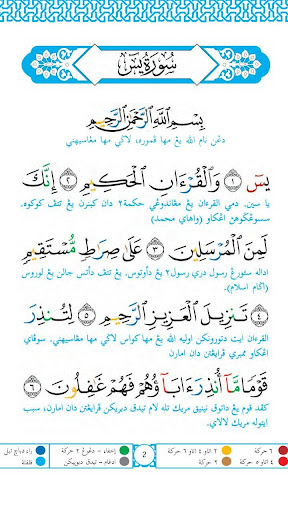 سُورَةُ يٰسٓ
بِسْمِ ٱللَّهِ ٱلرَّحْمَٰنِ ٱلرَّحِيمِ
دڠن نام الله يڠ مها ڤموره، لاݢي مها مڠاسيهني
يسٓ ١ وَٱلْقُرْءَانِ ٱلْحَكِيمِ ٢ إِنَّكَ
يا سين. دمي القرءان يڠ مڠاندوڠي حکمة٢ دان کبنرن يڠ تتڤ کوکوه.
سسوڠݢوهڽ اڠکاو (واهاي محمد)
لَمِنَ ٱلْمُرْسَلِينَ ٣ عَلَىٰ صِرَٰطٍ مُّسْتَقِيمٍ
اداله سئورڠ رسول دري رسول٢ يڠ دأوتوس. يڠ تتڤ دأتس جالن يڠ لوروس
(اݢام اسلام)
٤ تَنزِيلَ ٱلْعَزِيزِ ٱلرَّحِيمِ ٥ لِتُنذِرَ
القرءان ايت دتورونکن اوليه الله يڠ مها کواس لاݢي مها مڠاسيهني. سوڤاي
اڠکاو ممبري ڤرايڠتن دان امارن
قَوْمًا مَّآ أُنذِرَ ءَابَآؤُهُمْ فَهُمْ غَٰفِلُونَ ٦
کڤد قوم يڠ داتوق نينيق مريک تله لام تيدق دبريکن ڤرايڠتن دان امارن؛ سبب
ايتوله مريک لالاي.
٦ حرکة ٢ اتاو ٤ اتاو ٦ حرکة 2 إخفاء - دڠوڠ ٢ حرکة
٤ اتاو ٥ حرکة ٢ حرکة ادغام - تيدق دبونيکن قلقلة